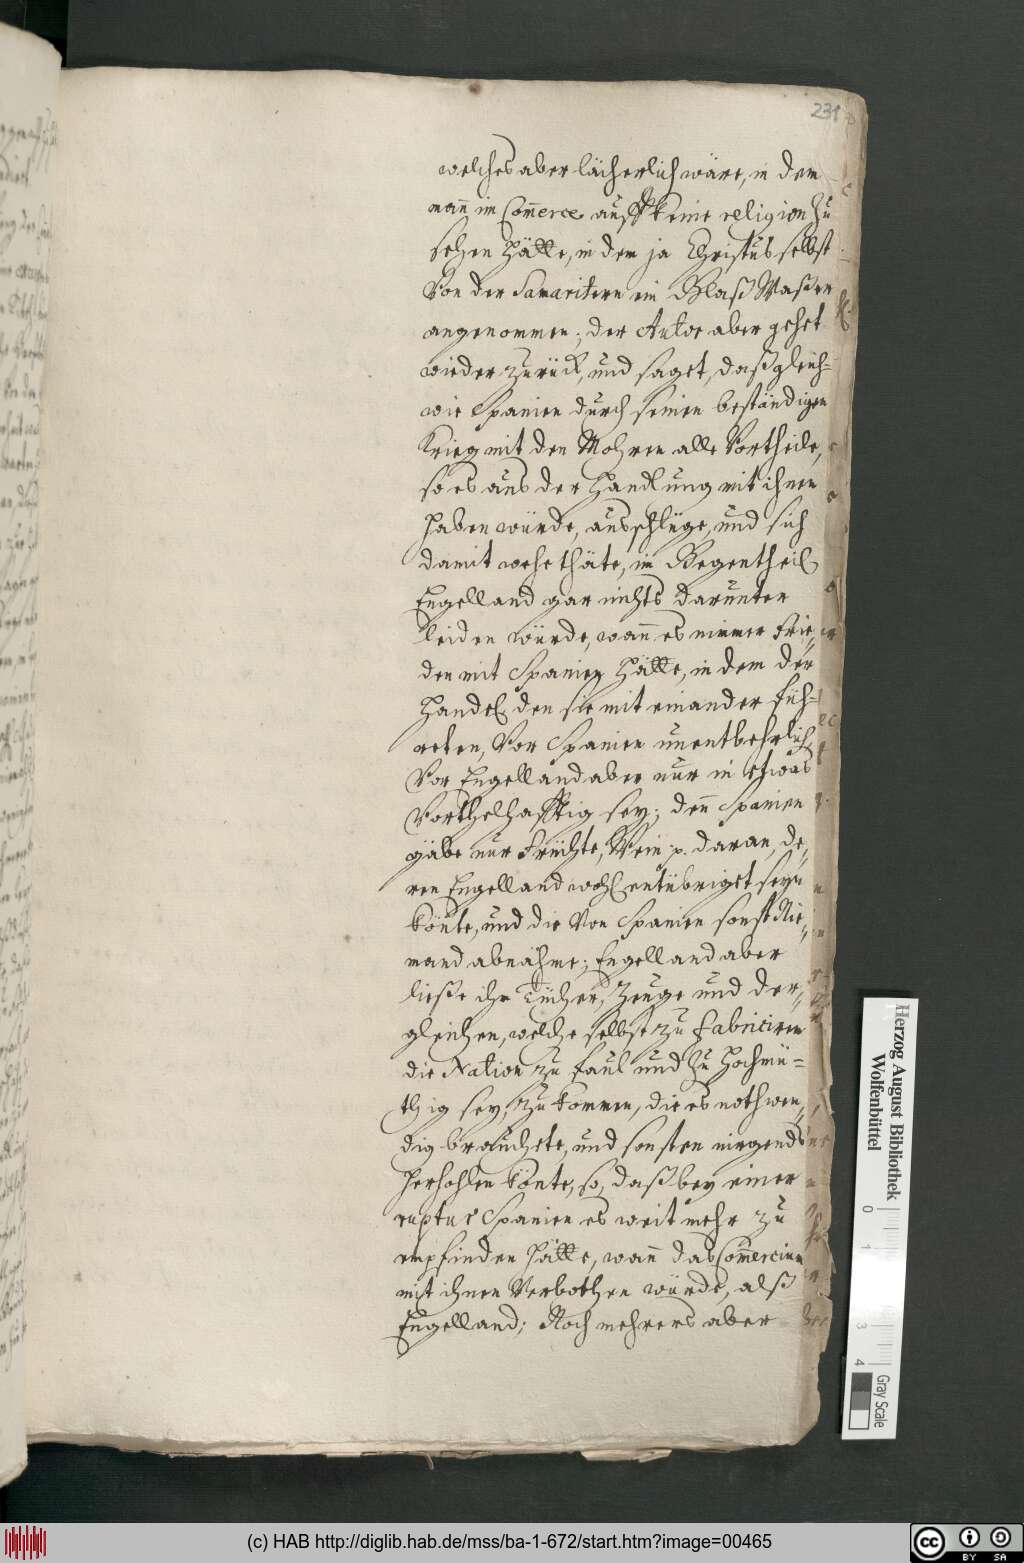 231
welches aber lächerlich wäre, in dem
man̅ im Com̅erce auff keine religion zu
sehen hätte, in dem ja Christus selbst
von der Samaritern ein Glaß Waßer
angenommen; der Autor aber gehet
wieder zurück, und saget, daß gleich=
wie Spanien durch seinen beständigen
Krieg mit den Mohren alle Vortheile,
so es aus der Handlung mit ihnen
haben würde, ausschlüge, und sich
damit wehe thäte, im Gegentheil
Engelland gar nichts darunter
leiden würde, wan̅ es nimmer Frie„
den mit Spanien hätte, in dem der
Handel, den sie mit einander füh=
reten, vor Spanien unentbehrlich
vor Engelland aber nur in etwas
vorthelhafftig sey; den̅ Spanien
gäbe nur Früchte, Wein p. daran, de„
ren Engelland wohl entübriget seyn
könte, und die von Spanien sonst Nie„
mand abnähme; Engelland aber
ließe ihr Tücher, Zeuge und der„
gleichen, welche selbst zu fabriciren
die Nation zu faul und zu hochmü=
thig sey, zu kommen, die es nothwen„
dig brauchete, und sonsten nirgends
herhohlen könte, so, daß bey einer
ruptur Spanien es weit mehr zu
empfinden hätte, wan̅ das Com̅ercium
mit ihnen verbothen würde, alß
Engelland; Noch mehrers aber
Herzog August Bibliothek
Wolfenbüttel
0 1 3 4
Gray Scale
(c) HAB http://diglib.hab.de/mss/ba-1-672/start.htm?image=00465
cc BY SA